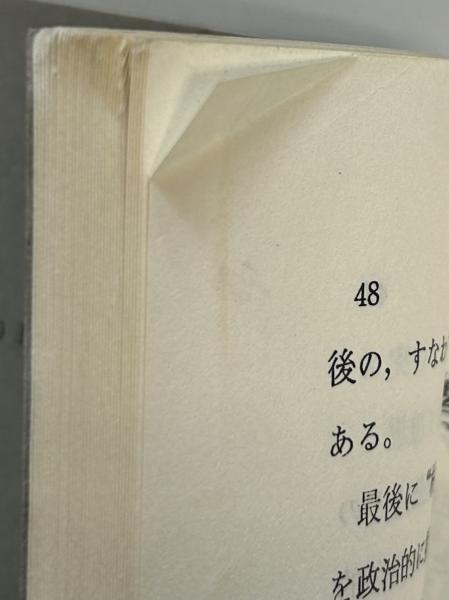 48
後の，すなか
ある。
最後に“
を政治的に